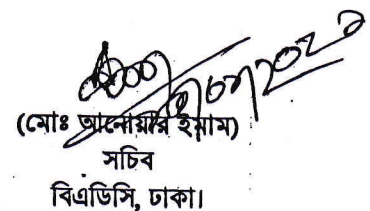 (মোঃ আনোয়ার ইমাম)
সচিব
বিএডিসি, ঢাকা।